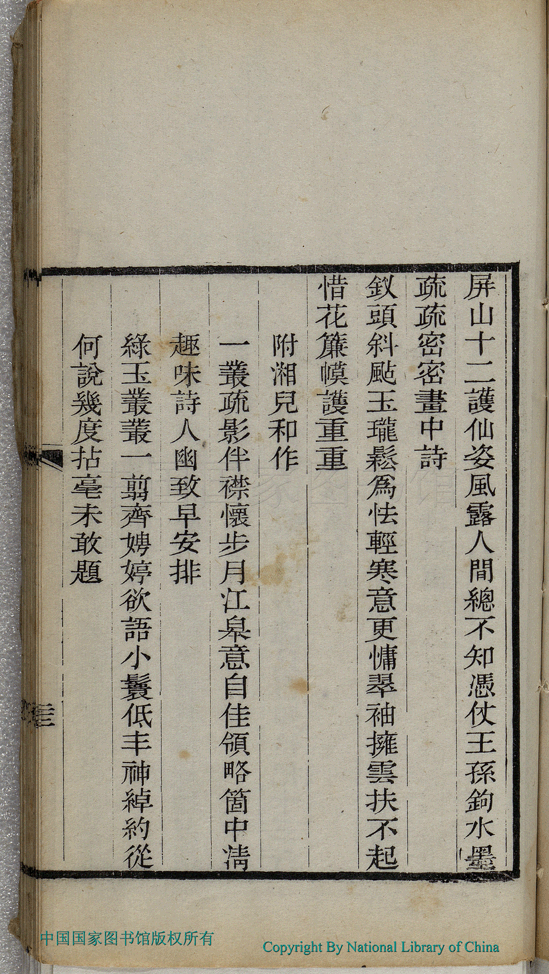 屏山十二護仙姿風露人間總不知憑仗王孫鉤水墨
疏疏密密畫中詩
釵頭斜颭玉瓏鬆為怯輕寒意更慵翠袖擁雲扶不起
惜花簾幙護重重
附湘兒和作
一叢疏影伴襟懷步月江皋意自佳領略箇中清
趣味詩人幽致早安排
綠玉叢叢一剪齊娉婷欲語小鬟低丰神綽約從
何說幾度拈毫未敢題
中国国家图书馆版权所有
Copyright By National Library of China